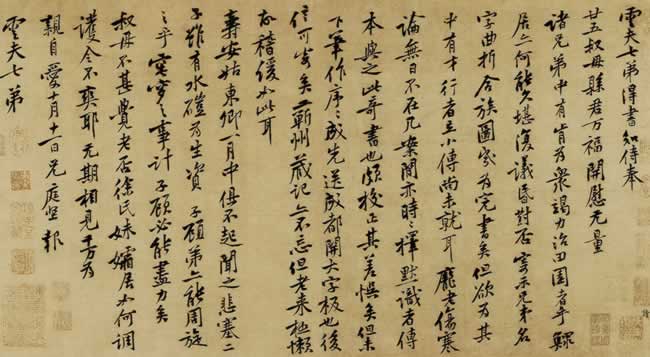 雲夫七弟得書知侍奉
廿五叔母縣君万福開慰无量
諸兄弟中有肯為衆竭力治田園者乎鰥
居亦何能久堪復議昏對否寄示兄弟名
字曲折合族圖遂為完書矣但欲為其
中有才行者立小傳尚未就耳龐老傷寒
論無日不在几案間亦時〻擇默識者傳
本與之此奇書也頗校正其差悮矣但未
下筆作序〻成先送成都開大字板也後
信可寄矣蘄州藏記亦不忘但老来極懶
故稽緩如此耳
壽安姑東卿一月中俱不起聞之悲塞二
子雖有水磑為生資子顧弟亦能周旋
之乎窀穸之事計子顧必能盡力矣
叔母不甚覺老否徐氏妹孀居如何調
護令不爽耶无期相見千万為
親自愛十月十一日兄庭堅報
雲夫七弟